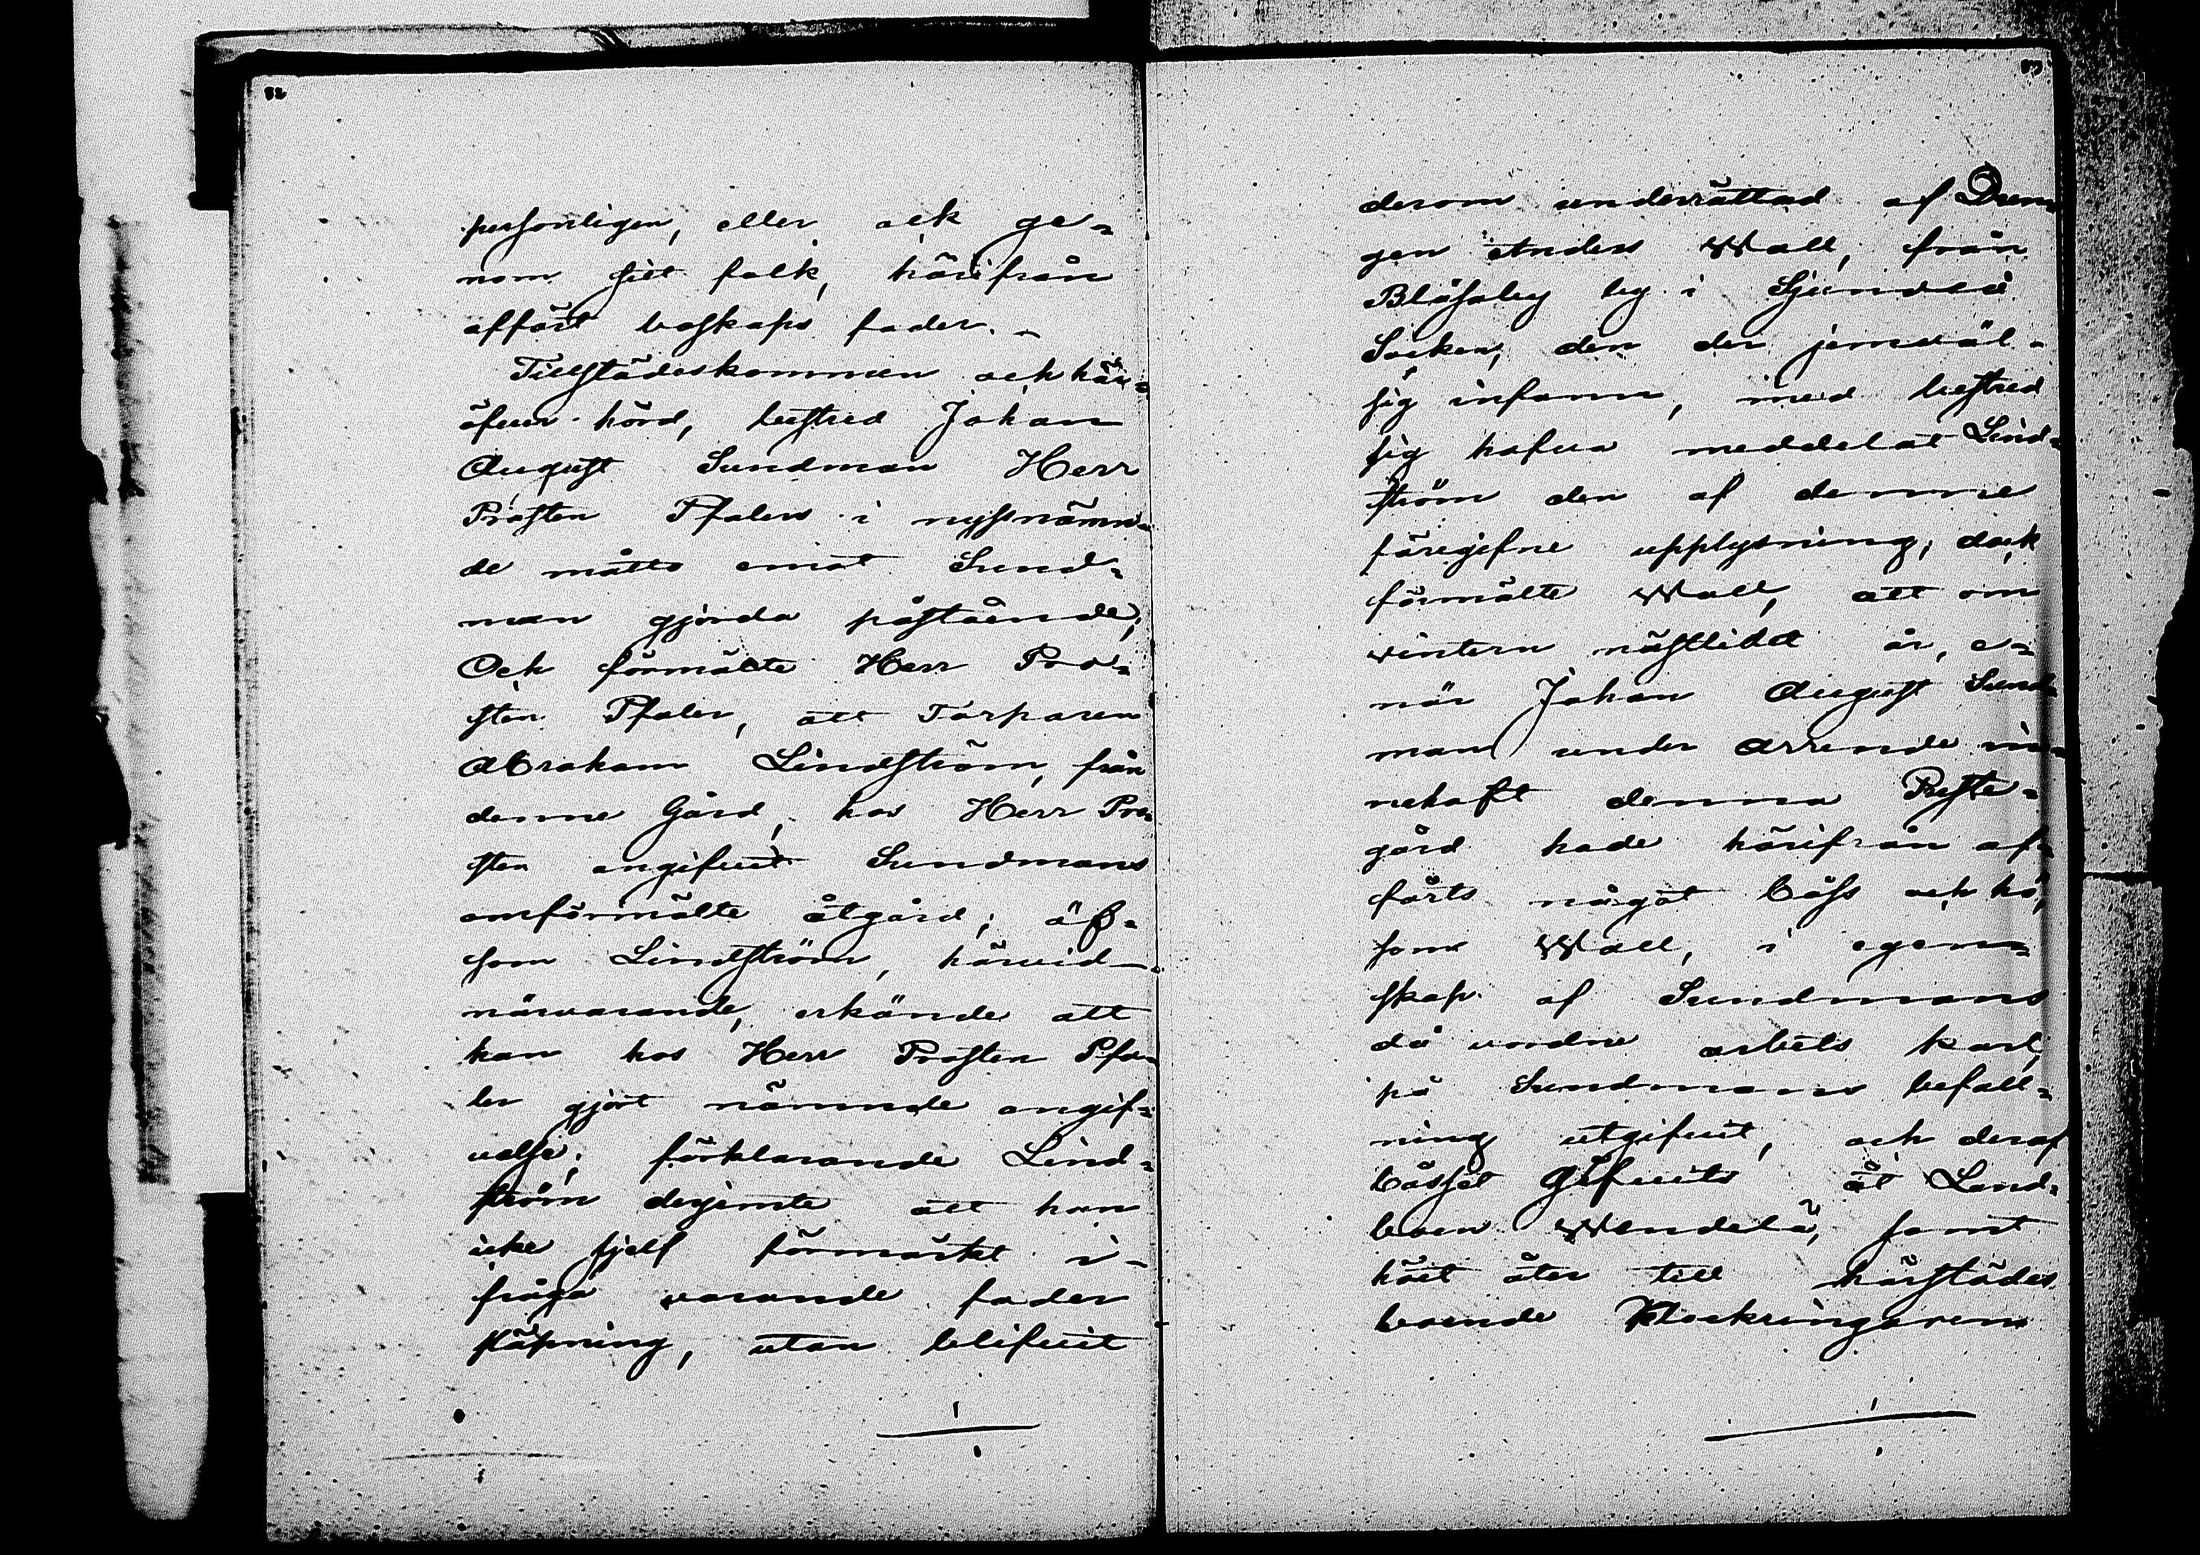 82
personligen, eller ock ge-
nom sitt folk, härifrån
affört boskaps foder. -
Tillstädeskommen och här-
öfver hörd, bestred Johan
August Sundman Herr
Prosten Pfalers i nyssnämn-
de måtto emot Sund-
man gjorda påstående;
Och förmälte Herr Pro-
sten Pfaler, att Torparen
Abraham Lindström, från
denne Gård, hos Herr Pro-
sten angifvit Sundmans
omförmälte åtgärd; äf-
som Lindström, härvid
närvarande, erkände att
han hos Herr Prosten Pfa-
ler gjort nämnde angif-
velse; förklarande Lind-
ström derjemte att han
icke sjelf förmärkt i-
fråga varande foder
släpning, utan blifvit
83
derom underrättad af Dren-
gen Anders Wall, från
Blåsaby by i Sjundeå
Socken, den der jemväl
sig infann, med bestred
sig hafva meddelat Lind-
ström den af denne
föregifne upplysning; dock
förmälte Wall, att om
vintern nästlidet år, e-
när Johan August Sund-
man under arrende in-
nehaft denna Preste-
gård hade härifrån af-
förts något båss och hö,
som Wall, i egen-
skap af Sundmans
då vordne arbets karl,
på Sundmans befall-
ning utgifvit, och deraf
båsset gifvits åt Land-
boen Wendelä, samt
höet åter till härstädes
boende Klockringaren